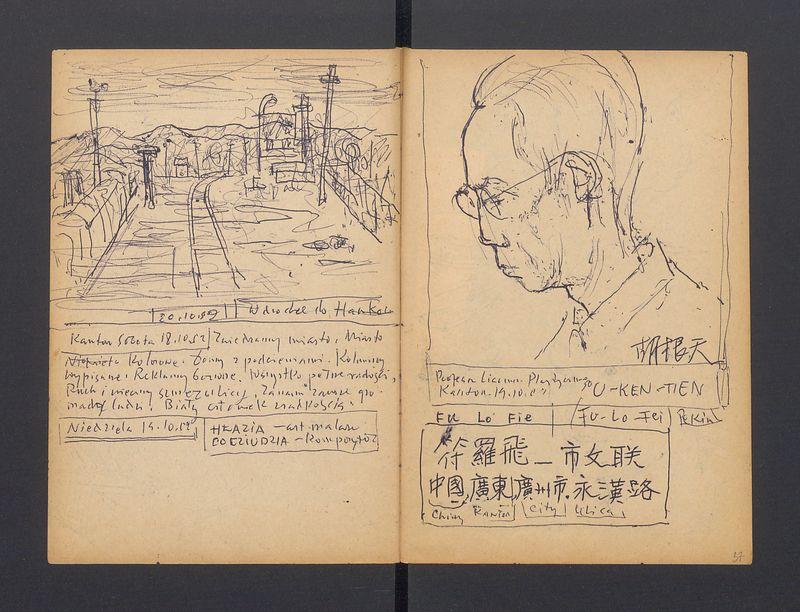 20.10.52
W drodze do Hankou
Kantor Sobota 18.10.52 Zwiedzamy miasto. Miasto
kolorowe. Domy z podcieniami. Kolumny
wypisane. Reklamy barwne. Wszystko pełne radości,
Ruch i wieczny szmer ulicy. Za nami zawsze gro-
mada ludu. Biały człowiek rzadkością
Niedziela 19.10.52
HRAZIA – art. malarz
GODZIUDZIA – Kompozytor
胡根天
Profesor Liceum Plastycznego
Kanton. 19.10.52
U-KEN-TIEN
FU LO FIE
(FU-LO-FEI)
Pekin
符羅飛 — 市文联
中國,廣東,廣州市.永漢路
Chiny Kanton City Ulica
37